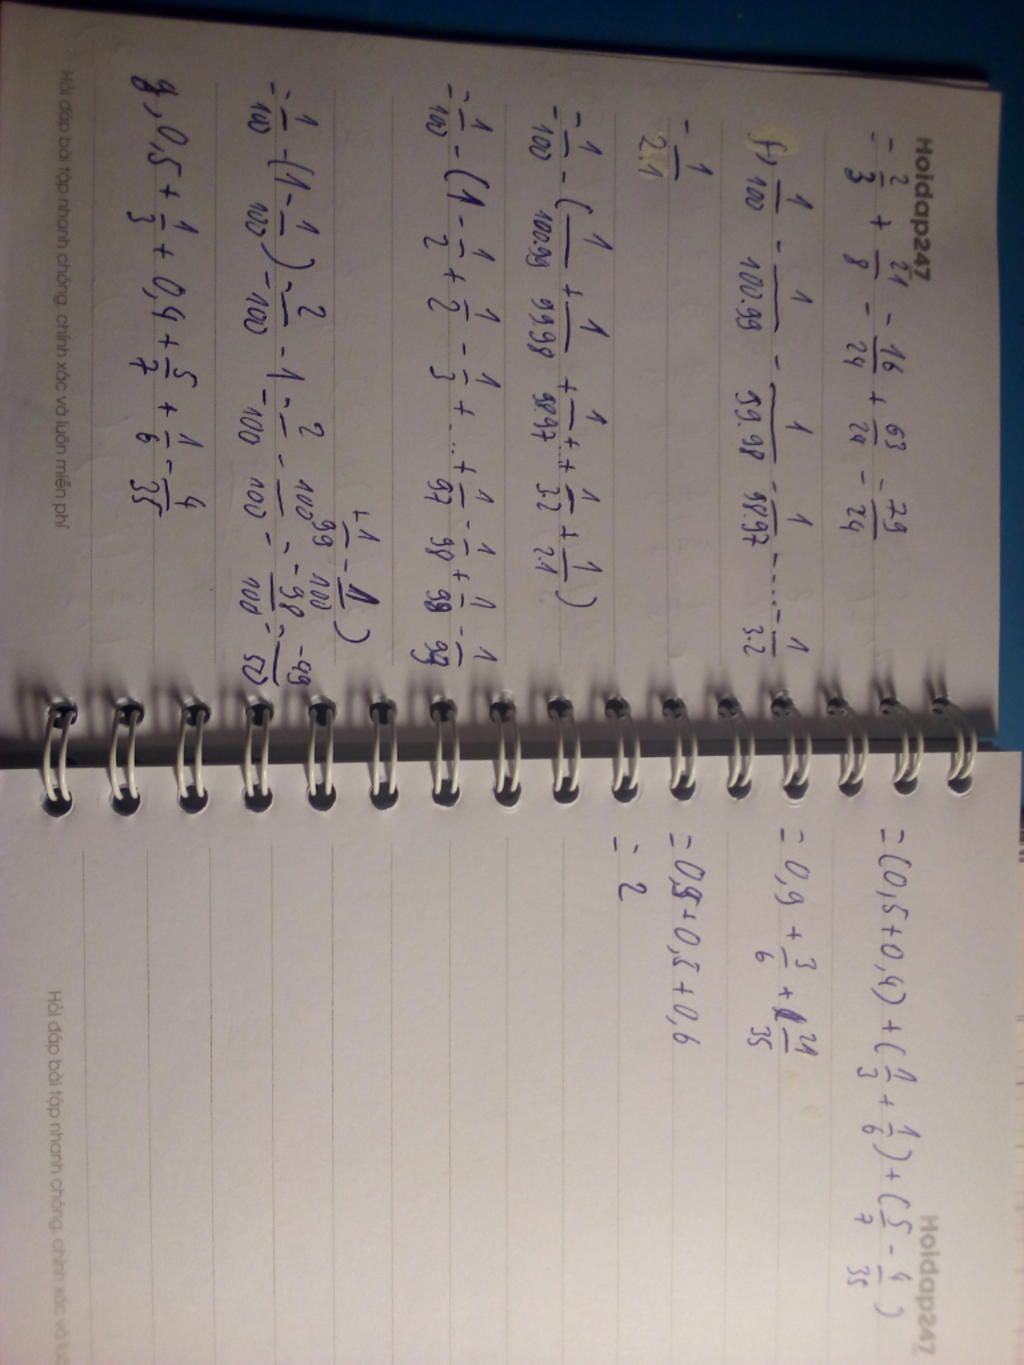 Hoidap247
= 2/3 + 21/8 = 16/24 + 63/24 = 79/24
f, 1/100 - 1/100.99 - 1/99.98 - 1/98.97 - .... - 1/3.2
- 1/2.1
= 1/100 - (1/100.99 + 1/99.98 + 1/98.97 + ... + 1/3.2 + 1/2.1)
= 1/100 - (1 - 1/2 + 1/2 - 1/3 + ... + 1/97 - 1/98 + 1/98 - 1/99
+ 1/99 - 1/100)
= 1/100 - (1 - 1/100) = 2/100 - 1 = 2/100 - 100/100 = -98/100 = -49/50
g, 0,5 + 1/3 + 0,4 + 5/7 + 1/6 - 4/35
Hỏi đáp bài tập nhanh chóng, chính xác và luôn miễn phí
Hoidap247
= (0,5 + 0,4) + (1/3 + 1/6) + (5/7 - 4/35)
= 0,9 + 3/6 + 21/35
= 0,9 + 0,5 + 0,6
= 2
Hỏi đáp bài tập nhanh chóng, chính xác và